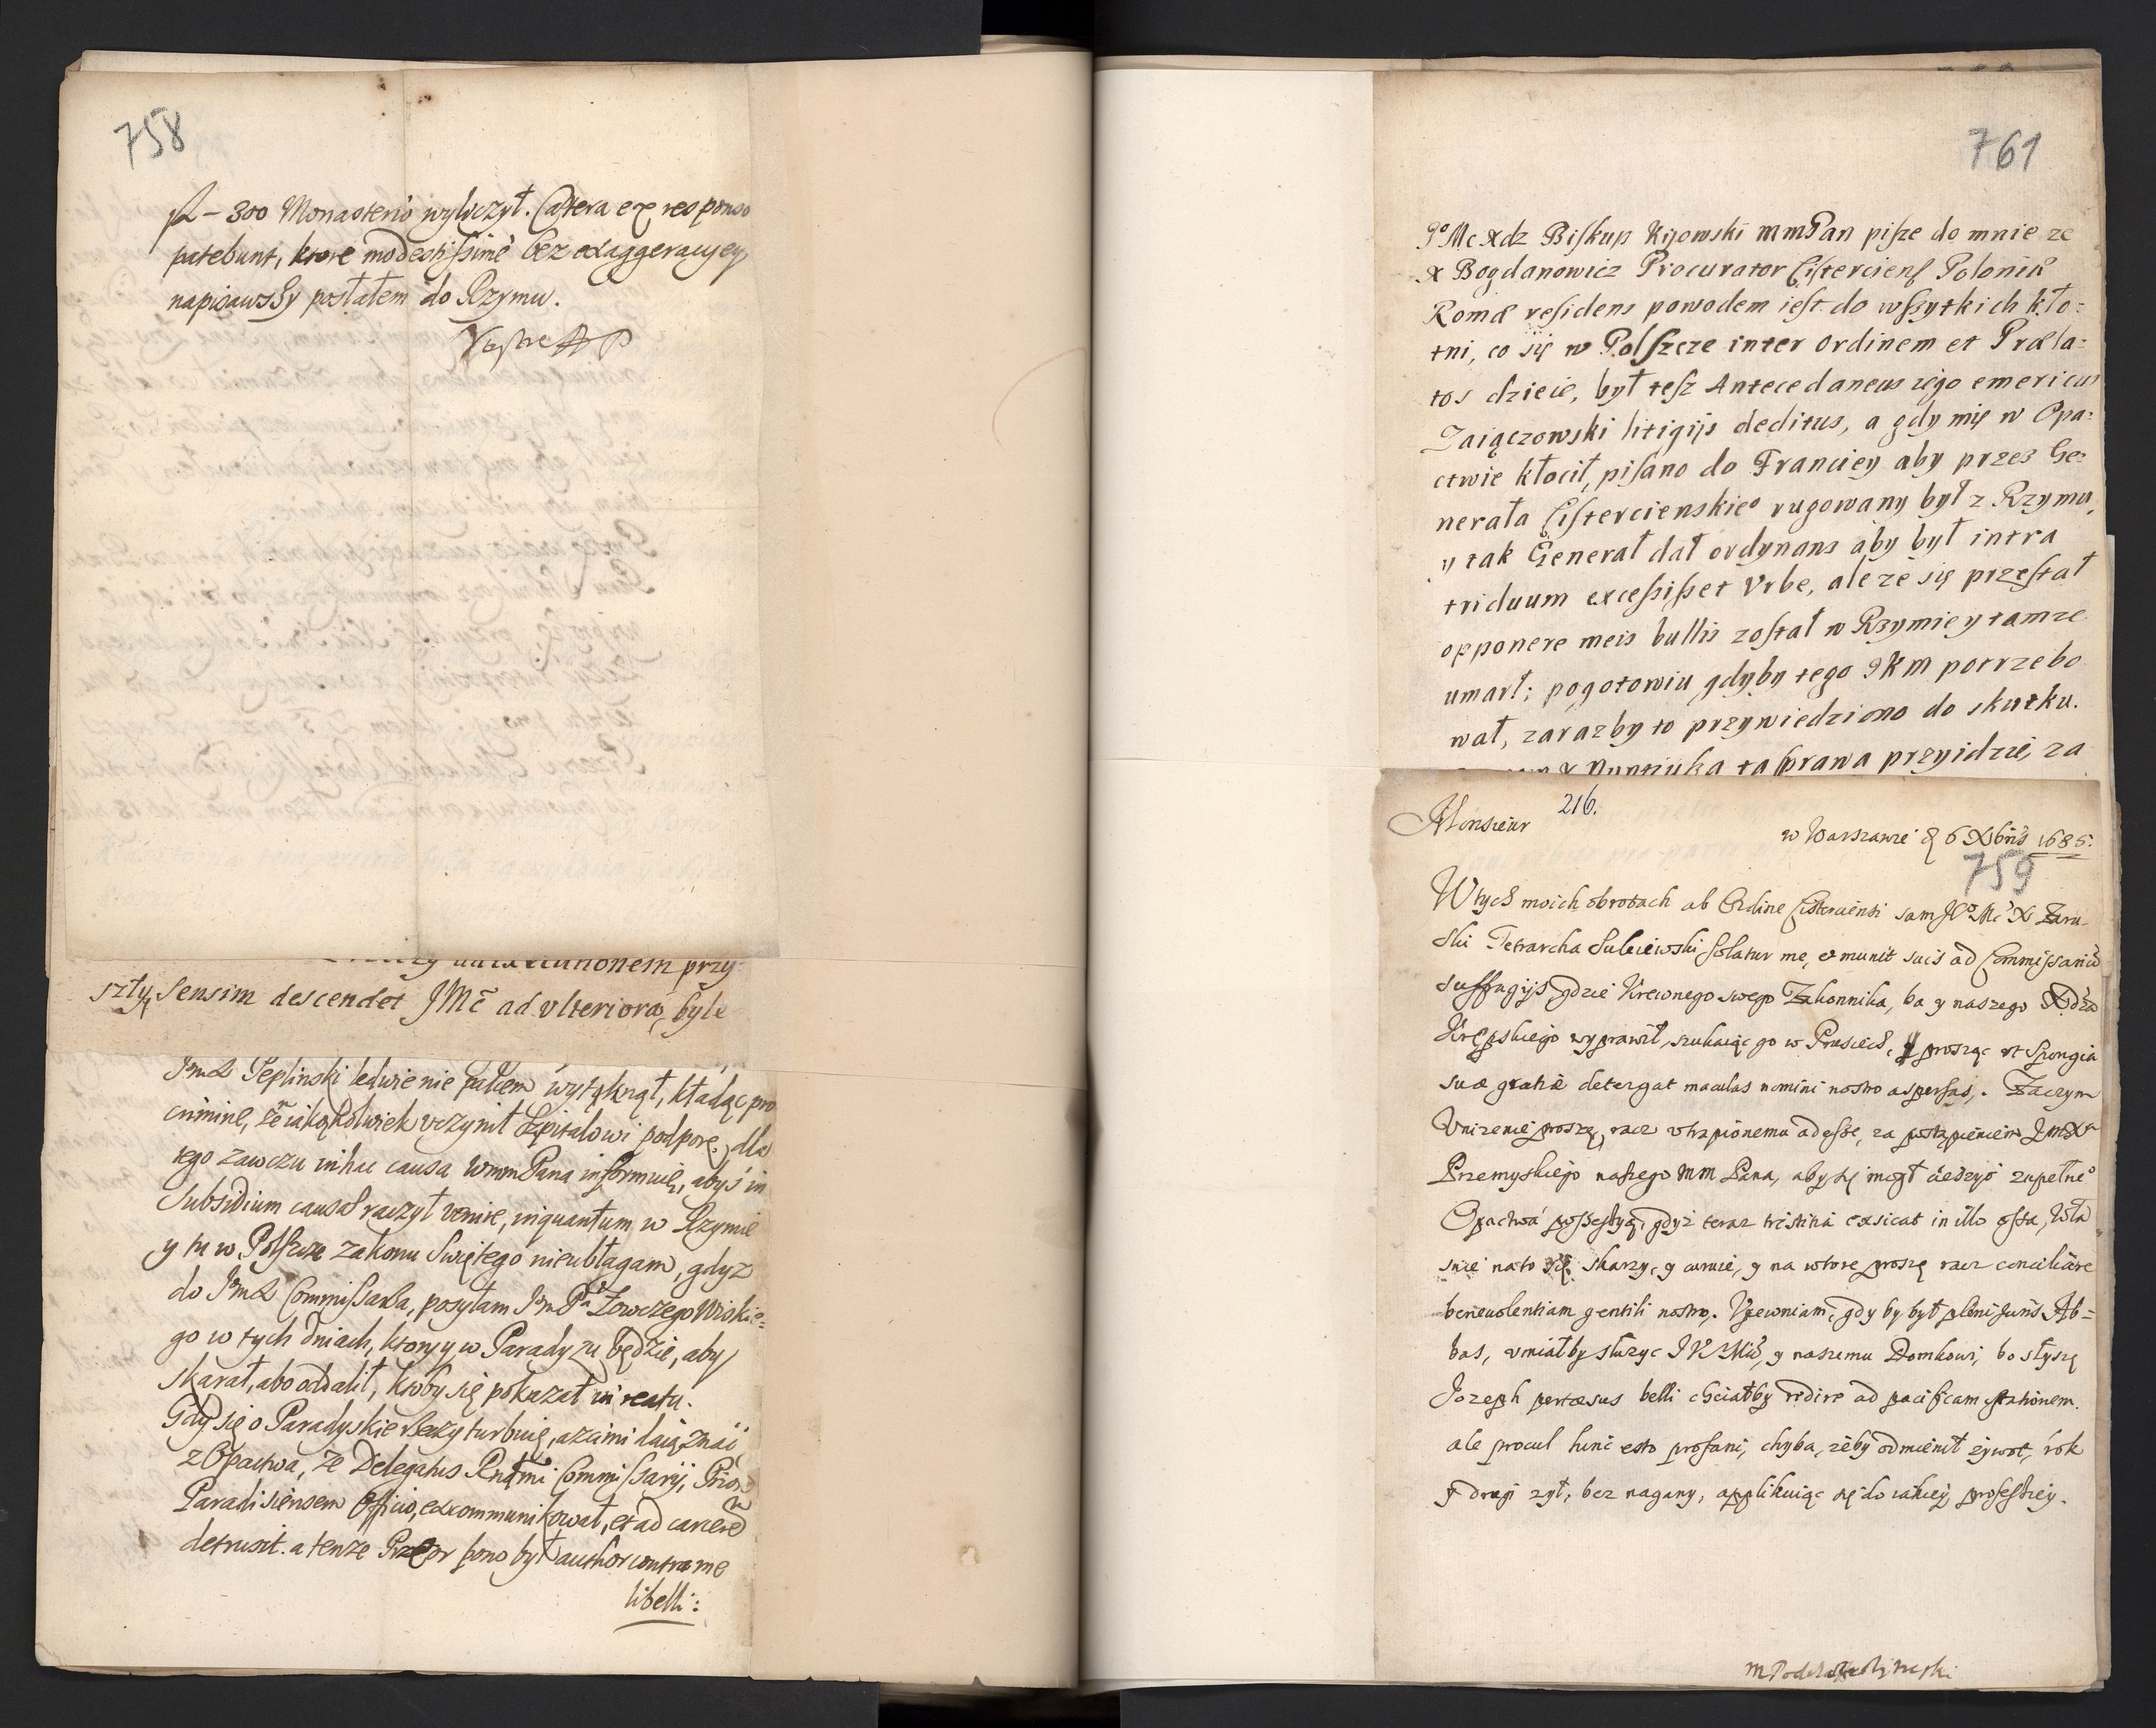 758
fl – 300 Monasterio wyliczył. Caetera ex responso
patebunt, ktore modestissimè bez exaggeracyey
napisawszy posłałem do Rzymu.
szły, sensim descendet JMć ad ulteriora, byle
Jmx Peplinski ledwie nie palcem wytknął, kładąc pro
crimine, że iakążkolwiek uczynił Szpitalowi podporę, dla
tego zawczu in hac causa wmmPana informuię, abyś in
subsidium causae raczył venire, inquantum w Rzymie
y tu w Polszcze zakonu Swiętego nieubłagam, gdyz
do Jmx Commissarza, posyłam Jm Pa Łowczego Wiskie=
go w tych dniach, ktory y w Paradyzu będzie, aby
skarał, abo oddalił, ktoby się pokazał in reatu.
Gdy się o Paradyskie rzeczy turbuię, aż mi daią znać
z Opactwa, że Delegatus Rndmi Commissarij, Prior
Paradisiensem Officio, excommunikował, et ad carcerē
detrusit. a tenze Przeor pono był author contra me
libelli:
761
Jo Mc xdz Biskup Kijowski mmPan pisze do mnie ze
x Bogdanowicz Procurator Cisterciens Poloniae
Romae residens powodem iest do wszytkich kło:
tni, co się w Polszcze inter ordinem et Praela:
tos dzieie, był tesz Antecedaneus iego emericus
Zaiączowski litigijs deditus, a gdy mię w Opa:
ctwie kłocił, pisano do Franciey aby przes Ge:
nerała Cistercienskiego rugowany był z Rzymu,
y tak Generał dał ordynans aby był intra
triduum excessisset Urbe, ale ze się przestał
opponere meis bullis został w Rzymie y tamze
umarł; pogotowiu gdyby tego JKM potrzebo
wał, zarazby to przywiedziono do skutku.
x Nuntiuka ta sprawa przyidzie, za
216.
Monsieur
w Warszawie d 6 Xbris 1685.
759
W tych moich obrotach ab Ordine Cisterciensi sam Jo Mc X Zaru
ski Tetrarcha Suleiewski solatur me, et munit suis ad Commissariū
suffragijs gdzie Krewnego swego Zakonnika, ba y naszego Xdza
Krępskiego wyprawił, szukaiąc go w Prusiech, prosząc ut Spongia
suae gratiae detergat maculas nomini nostro aspersas. Zaczym
Unizenie proszę, racz utrapionemu adesse, za postąpieniem Jmxa
Przemyskiego naszego mm Pana, aby się mogł cieszyć zupełnego
Opactwa possessyą, gdyż teraz tristitia exsicat in illo ossa, Wła
snie na to się skarzy, y anuie, y na wtore proszę racz conciliare
benevolentiam gentili nostro. Upewniam, gdy by był pleni juris Ab=
bas, umiałby służyc JKMci, y naszemu Domkowi, bo słyszę
Jozeph pertaesus belli chciałby redire ad pacificam stationem.
ale procul hinc esto profani, chyba, żeby odmienił żywot, rok
y drugi zył, bez nagany, applikuiąc się do iakiey professiey.